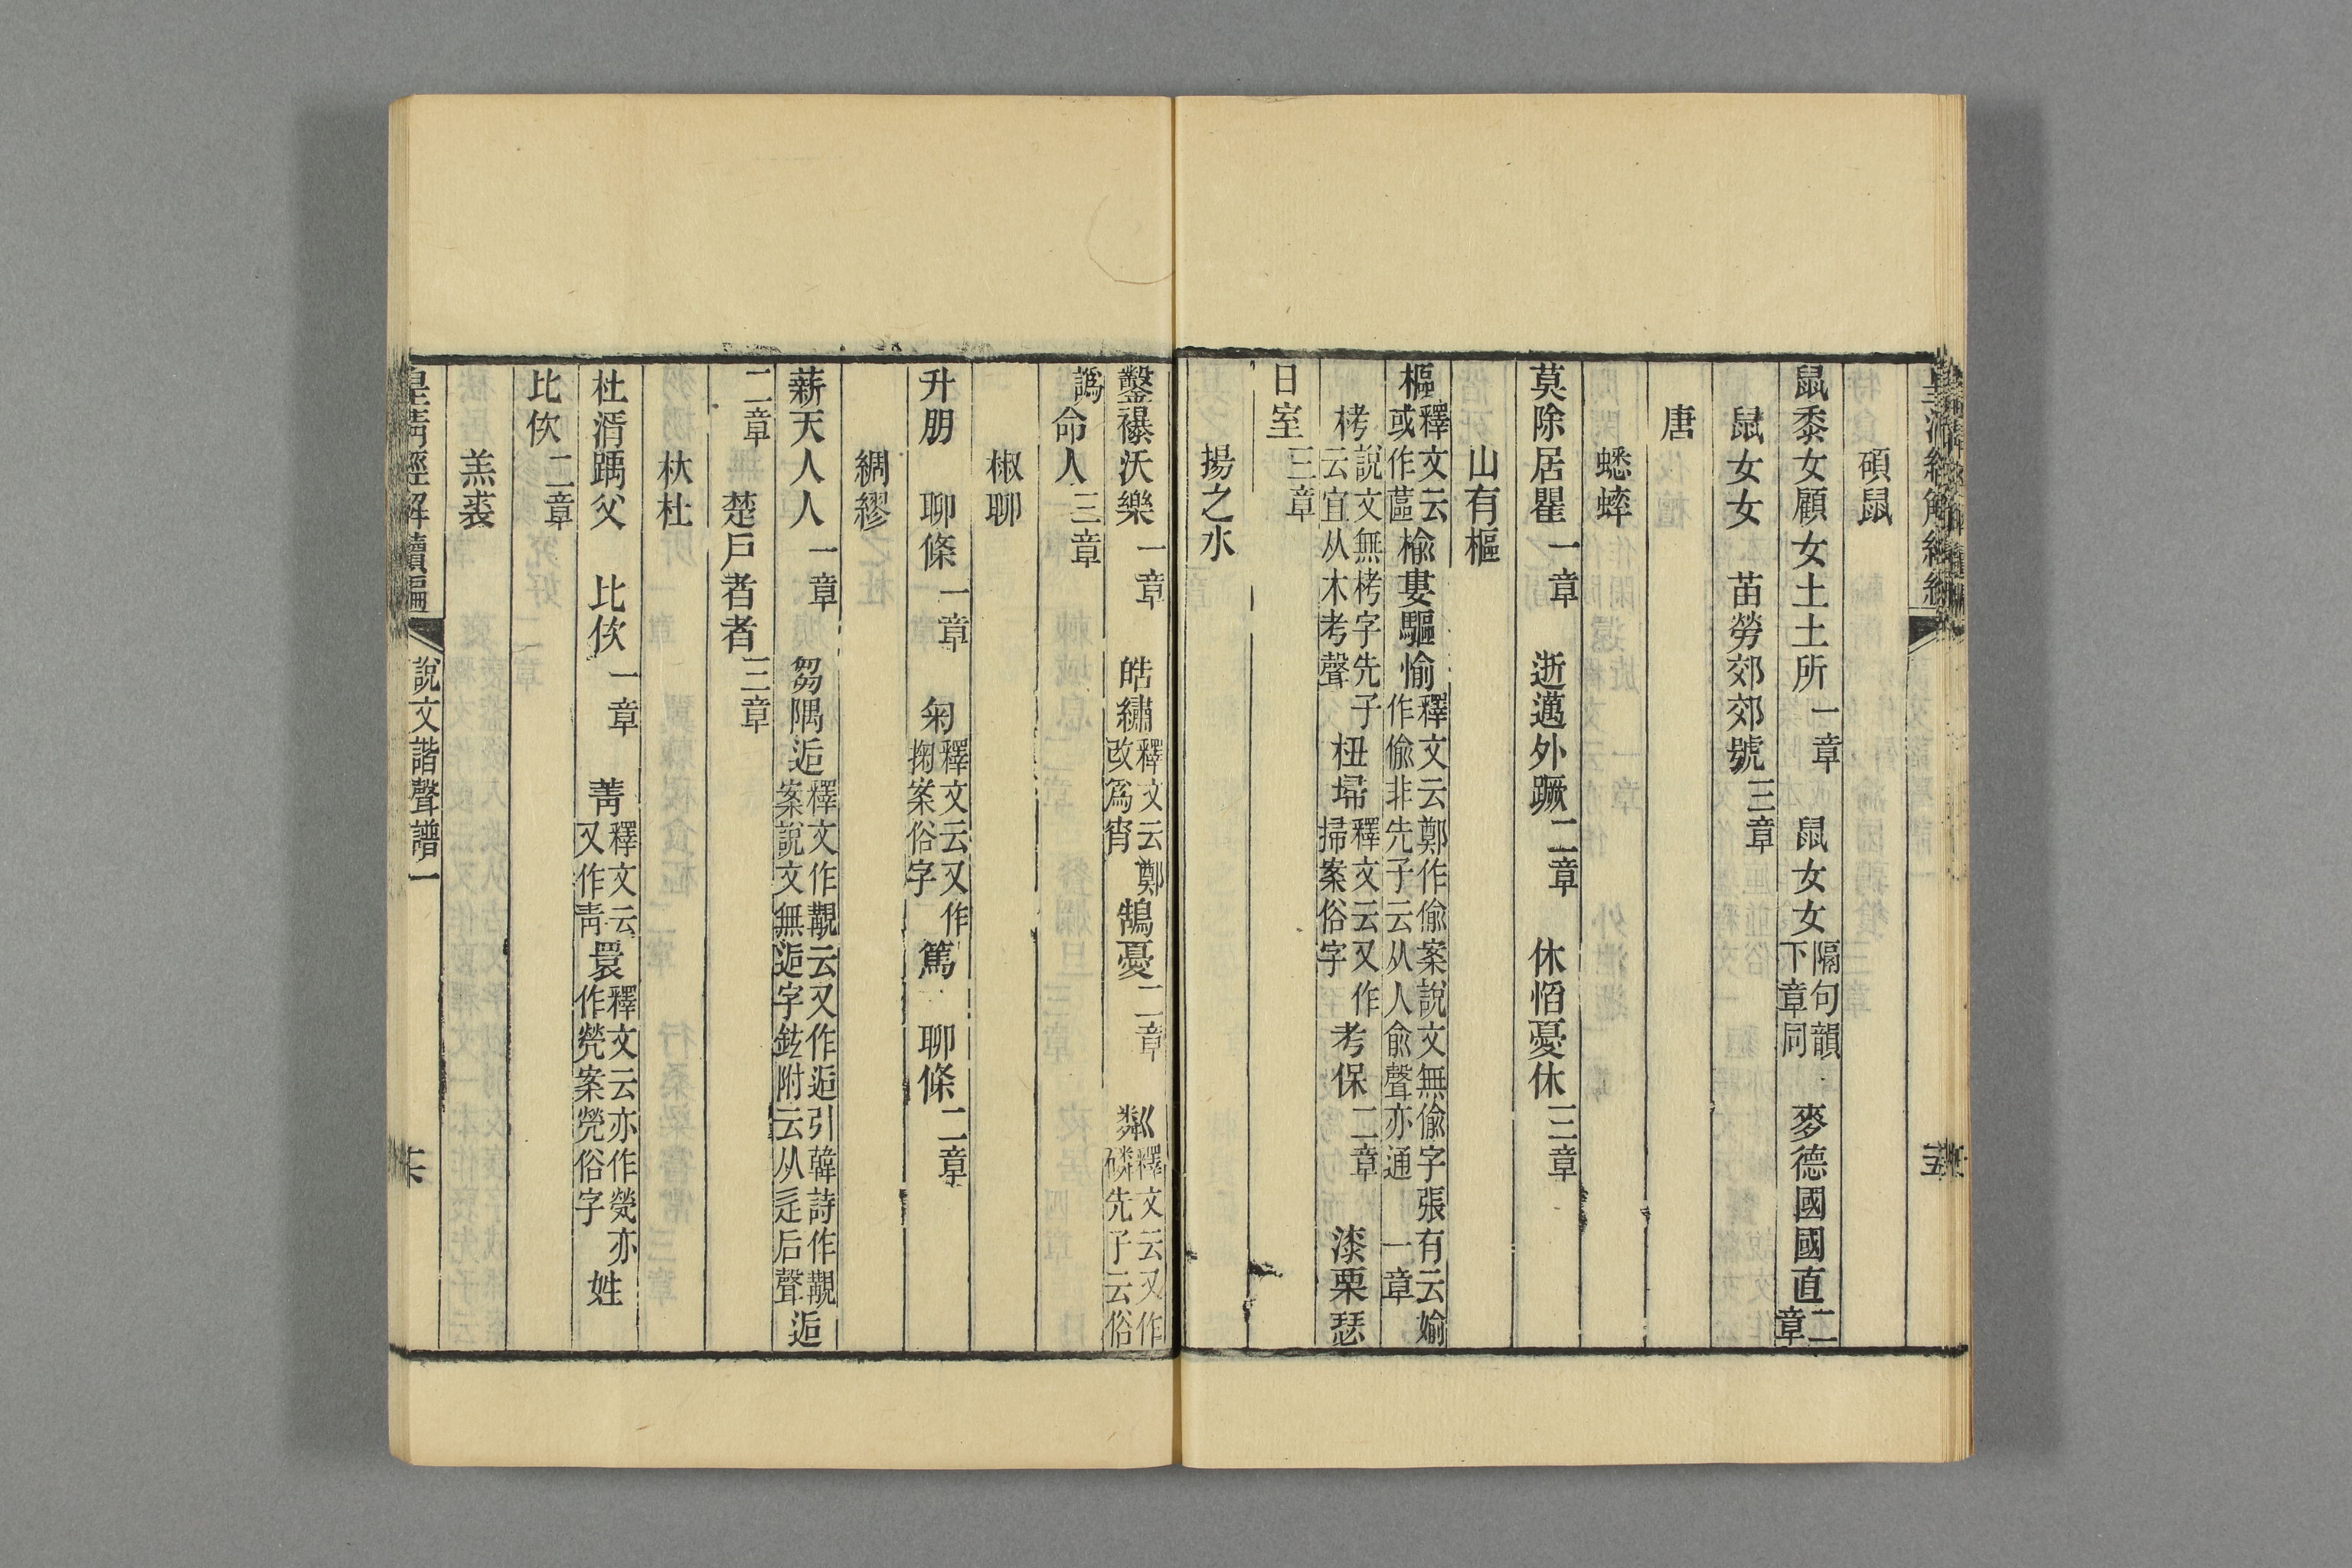 碩鼠
鼠黍女顧女土土所一章 鼠女女隔句韻下章同 麥德國國直二章
鼠女女 苗勞郊郊號三章
唐
蟋蟀
莫除居瞿一章 逝邁外蹶二章 休慆憂休三章
山有樞
樞釋文云或作蓲楡婁驅愉釋文云鄭作偸案說文無偸字張有云媮作偸非先子云从人兪聲亦通一章
栲說文無栲字先子云宜从木考聲杻埽釋文云又作掃案俗字考保二章 漆栗瑟
日室三章
揚之水
鑿襮沃樂一章 皓繡釋文云鄭改爲宵鵠憂二章 粼釋文云又作磷先子云俗
譌命人三章
椒聊
升朋 聊條一章 匊釋文云又作掬案俗字篤 聊條二章
綢繆
薪天人人一章 芻隅逅釋文作覯云又作逅引韓詩作覯案說文無逅字鉉附云从辵后聲逅
二章 楚戶者者三章
杕杜
杜湑踽父 比佽一章 菁釋文云又作靑睘釋文云亦作煢亦作焭案焭俗字姓
比佽二章
羔裘
皇淸經解續編 說文諧聲譜一